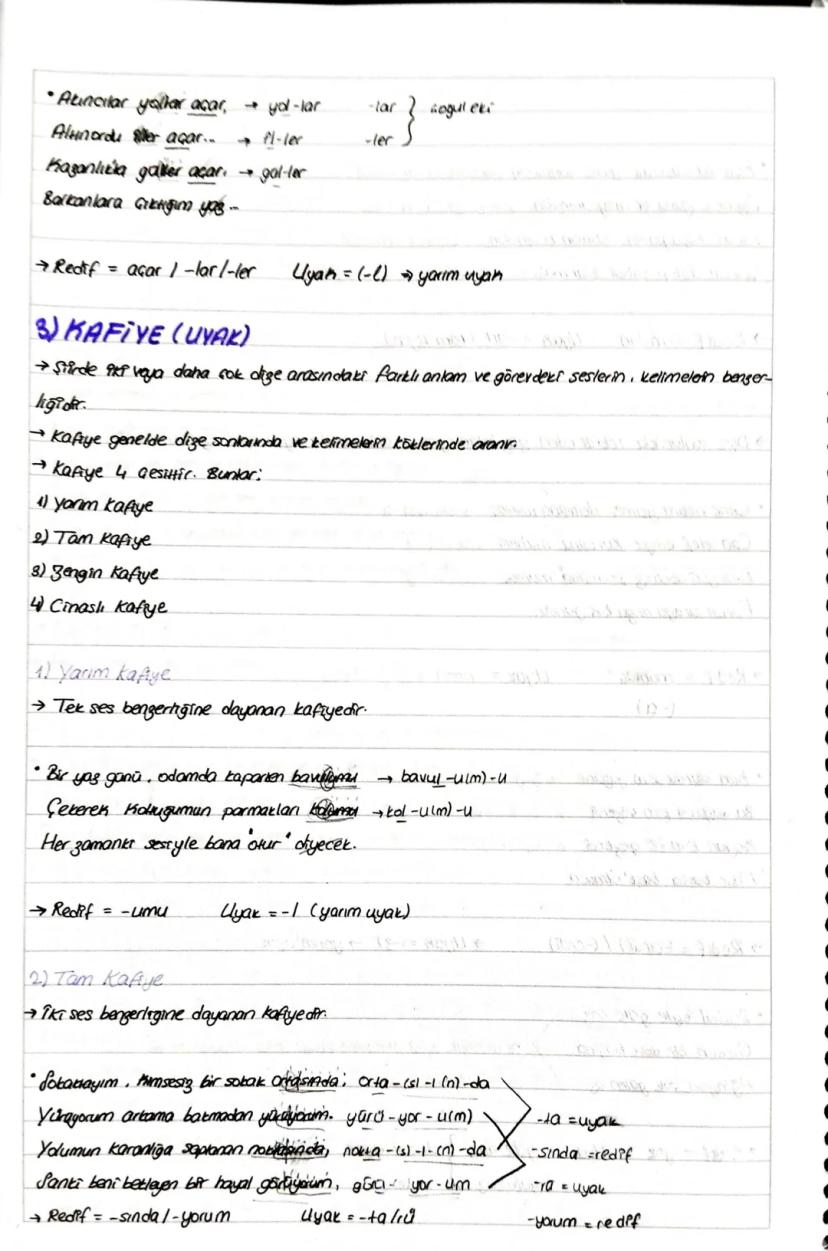 • Akıncılar yollar açar, → yol-lar -lar } çoğul eki
Altınordu iller açar... → il-ler -ler
Kazanlıkta güller açar. → gül-ler
Balkanlara çıktığım yaz...
→ Redif = açar / -lar/-ler Uyak = (-l) → yarım uyak
3) KAFİYE (UYAK)
→ Şiirde iki veya daha çok dize arasındaki farklı anlam ve görevdeki seslerin, kelimelerin benzer-
liğidir.
→ Kafiye genelde dize sonlarında ve kelimelerin köklerinde aranır.
→ Kafiye 4 çeşittir. Bunlar:
1) Yarım Kafiye
2) Tam Kafiye
3) Zengin Kafiye
4) Cinaslı Kafiye
1) Yarım Kafiye
→ Tek ses benzerliğine dayanan kafiyedir.
• Bir yaz günü, odamda kaparken bavulumu → bavul-u(m)-u
Çekerek koltuğumun parmakları kolumu → kol-u(m)-u
Her zamanki sesiyle bana "otur" diyecek.
→ Redif = -umu Uyak = -l (yarım uyak)
2) Tam Kafiye
→ İki ses benzerliğine dayanan kafiyedir.
• Sokaktayım, kimsesiz bir sokak ortasında; orta-(s)-ı-(n)-da
Yürüyorum arkama bakmadan yürüyorum. yürü-yor-u(m) -ta = uyak
Yolumun karanlığa saplanan noktasında, nokta-(s)-ı-(n)-da -sında = redif
Sanki beni bekleyen bir hayal görüyorum, görü- yor-um -rü = uyak
→ Redif = -sında/-yorum Uyak = -ta/rü -yorum = redif